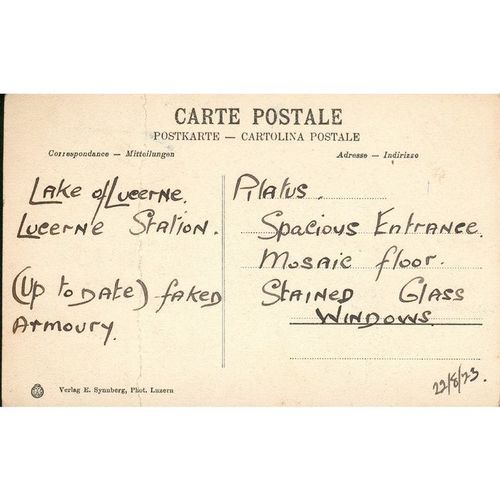 CARTE POSTALE
POSTKARTE — CARTOLINA POSTALE
Correspondance — Mitteilungen
Adresse — Indirizzo
Lake of Lucerne.
Lucerne Station.
(Up to date) faked
Armoury.
Pilatus.
Spacious Entrance.
Mosaic floor.
Stained Glass
Windows.
Verlag E. Synnberg, Phot. Luzern
22/8/23.